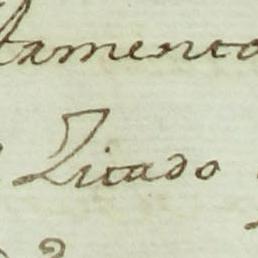 tamento
Zitado